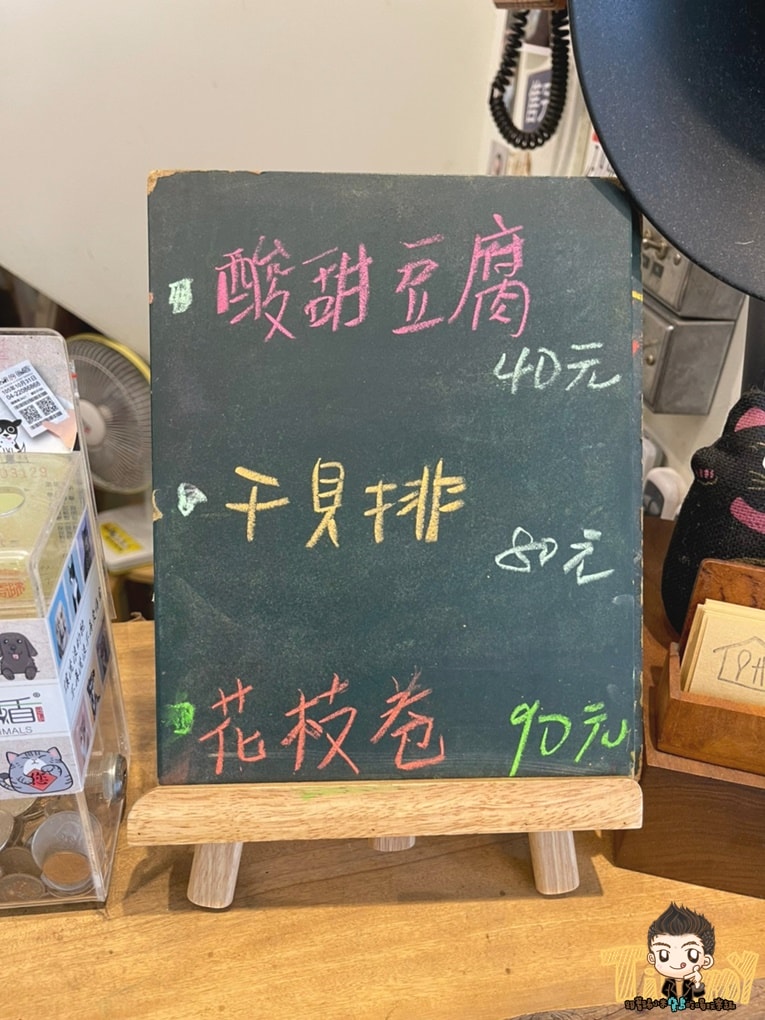 酸甜豆腐
40元
干貝排
80元
花枝卷
90元
盾
MALS